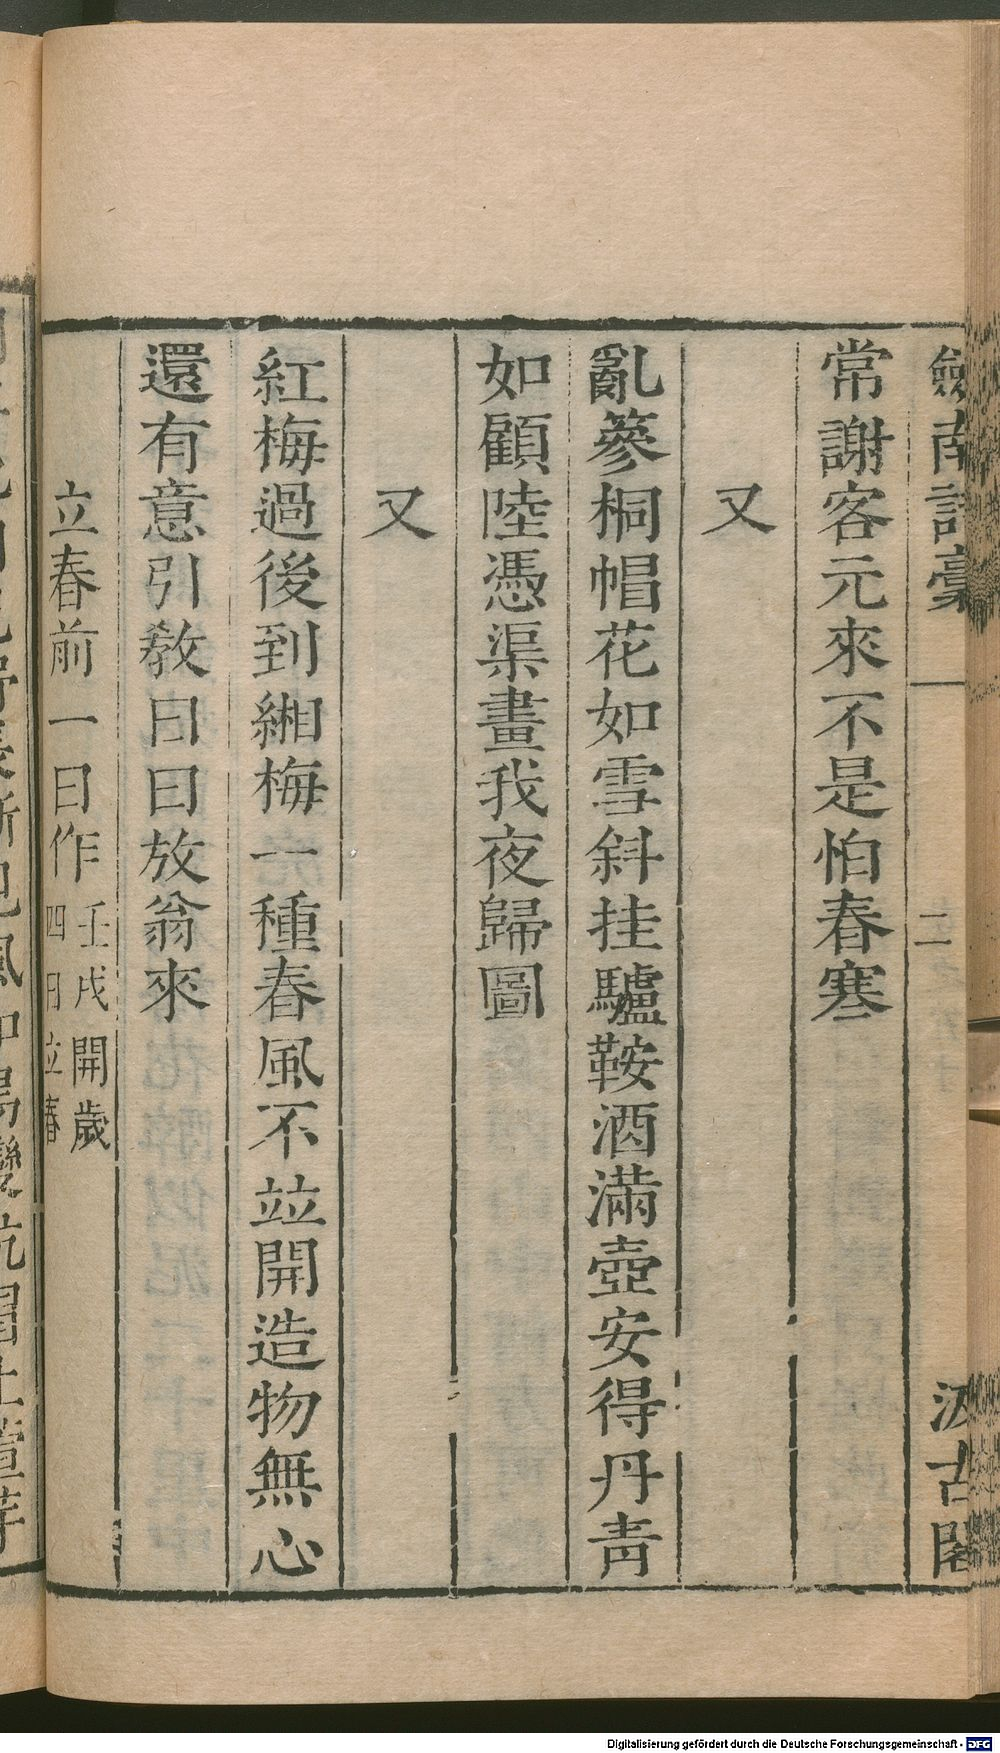 劍南詩稾 一 二 汲古閣
常謝客元來不是怕春寒
又
亂篸桐帽花如雪斜挂驢鞍酒滿壺安得丹靑
如顧陸憑渠畫我夜歸圖
又
紅梅過後到緗梅一種春風不竝開造物無心
還有意引敎日日放翁來
立春前一日作壬戌開歲
四日立春
Digitalisierung gefördert durch die Deutsche Forschungsgemeinschaft - DFG